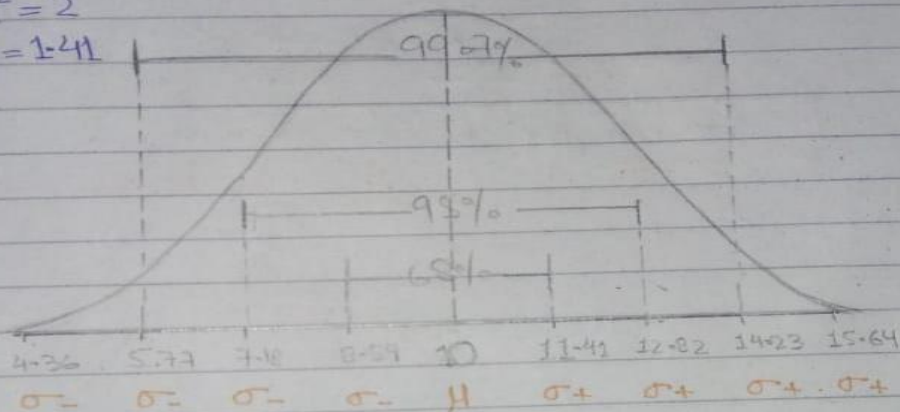 = 2
= 1.41
99.7%
95%
68%
4.36 5.77 7.18 8.59 10 11.41 12.82 14.23 15.64
σ- σ- σ- σ- μ σ+ σ+ σ+ σ+